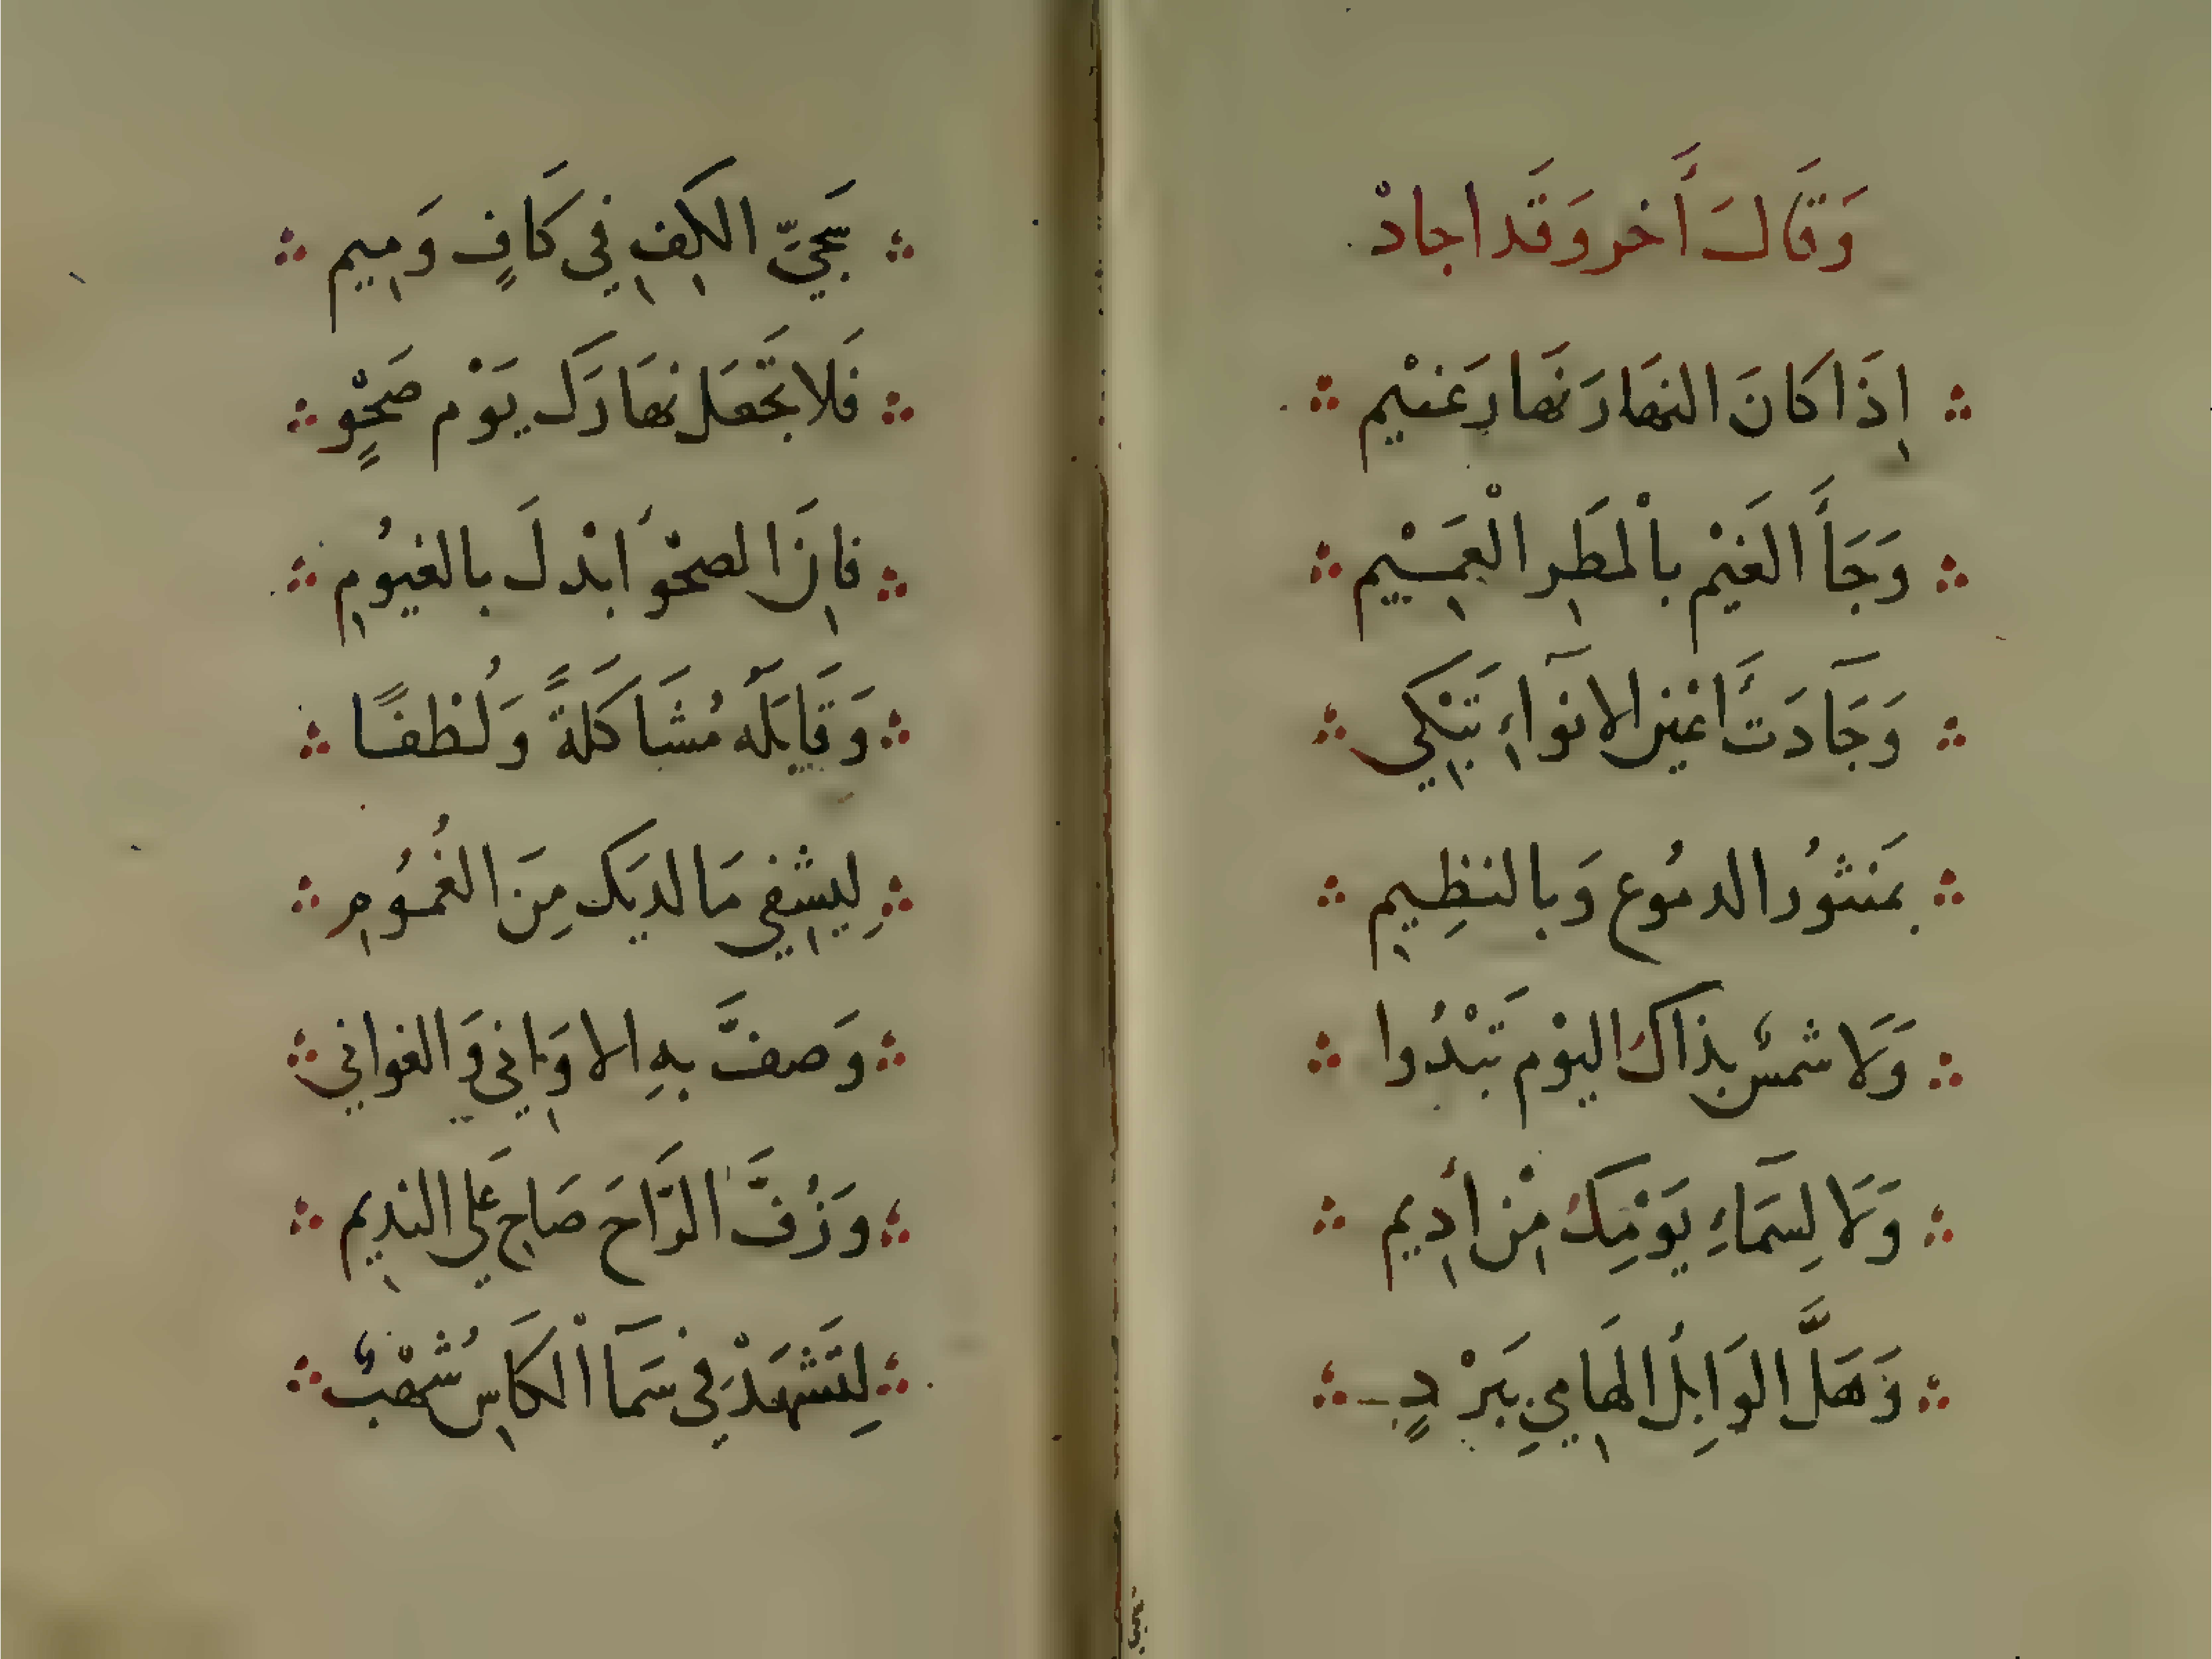 وَقَالَ أَخر وَقَد اجادْ
اِذَا كَانَ النهَار نَهَار غَيْم
وَجَأَ الغَيْم باْلمَطَرِ الْعَمِيْم
وَجَآدَتَ اعْين الانوَآءِ تَبْكِي
بمَنثوُر الدموُع وَبالنظِيمِ
وَلَا شمسٌ بذَاكَ اليوْم تَبْدُوا
وَلَا لِسَمَآءِ يَوْمِكَ مِنْ اَدِيم
وَهَلَّ الوَابِلُ الهَامِي بِبَرْدٍ
سَخِيَّ الكَفِ فِي كَافٍ وَمِيم
فَلا تجْعَل نهَارَك يَوْم صَحْوٍ
فاِنَ الصحْوَ ابْدلَ بالغيوُمِ
وَقَابِلَهُ مُشَاكَلَةً وَلُطفًا
لِيشفِي مَا لديَك مِنَ الغُموُمِ
وَصفَّ بهِ الاوَانِي وَالغوانِي
وَزُفَّ الرَّاحَ صَاحِ عَلى النديمِ
لِتَشْهَدْ فِي سَمَآ اْلكَاسِ شُهْبٌ